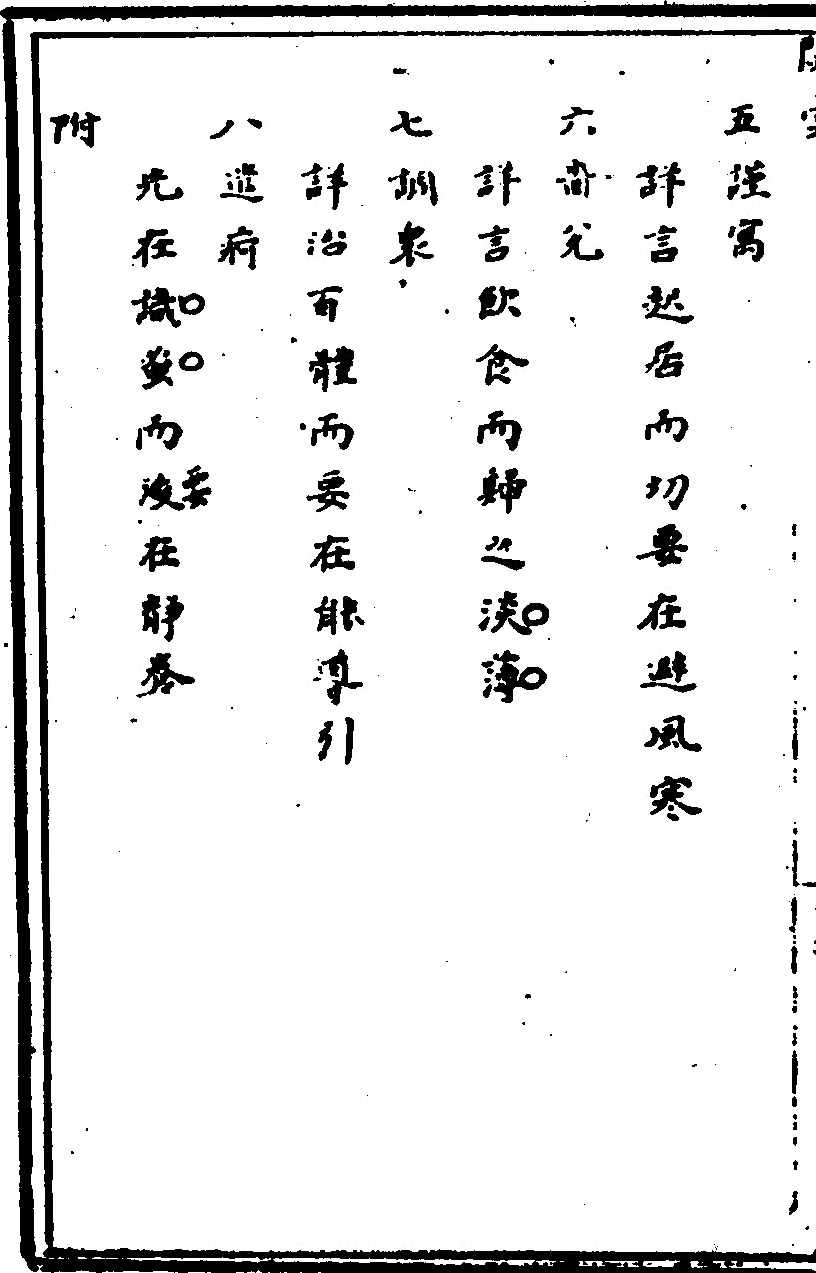 五 謹寓
詳言起居而切要在避風寒
六 啬兌
詳言飲食而歸之淡薄
七 調衆
詳治百體而要在能導引
八 遣疴
先在識蚤而後要在靜養
附